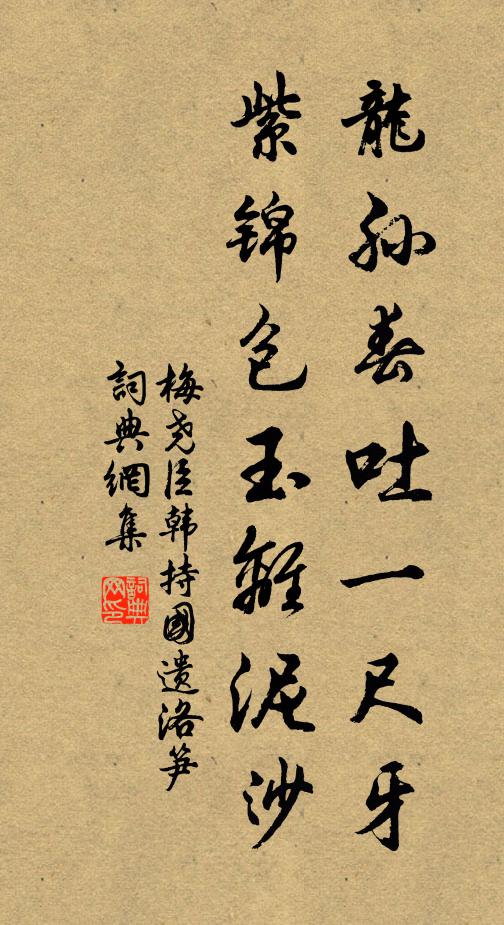 龍孫春吐一尺牙
紫锦包玉離泥沙
梅尧臣韩持國遗洛笋
詞典網集
詞典網印